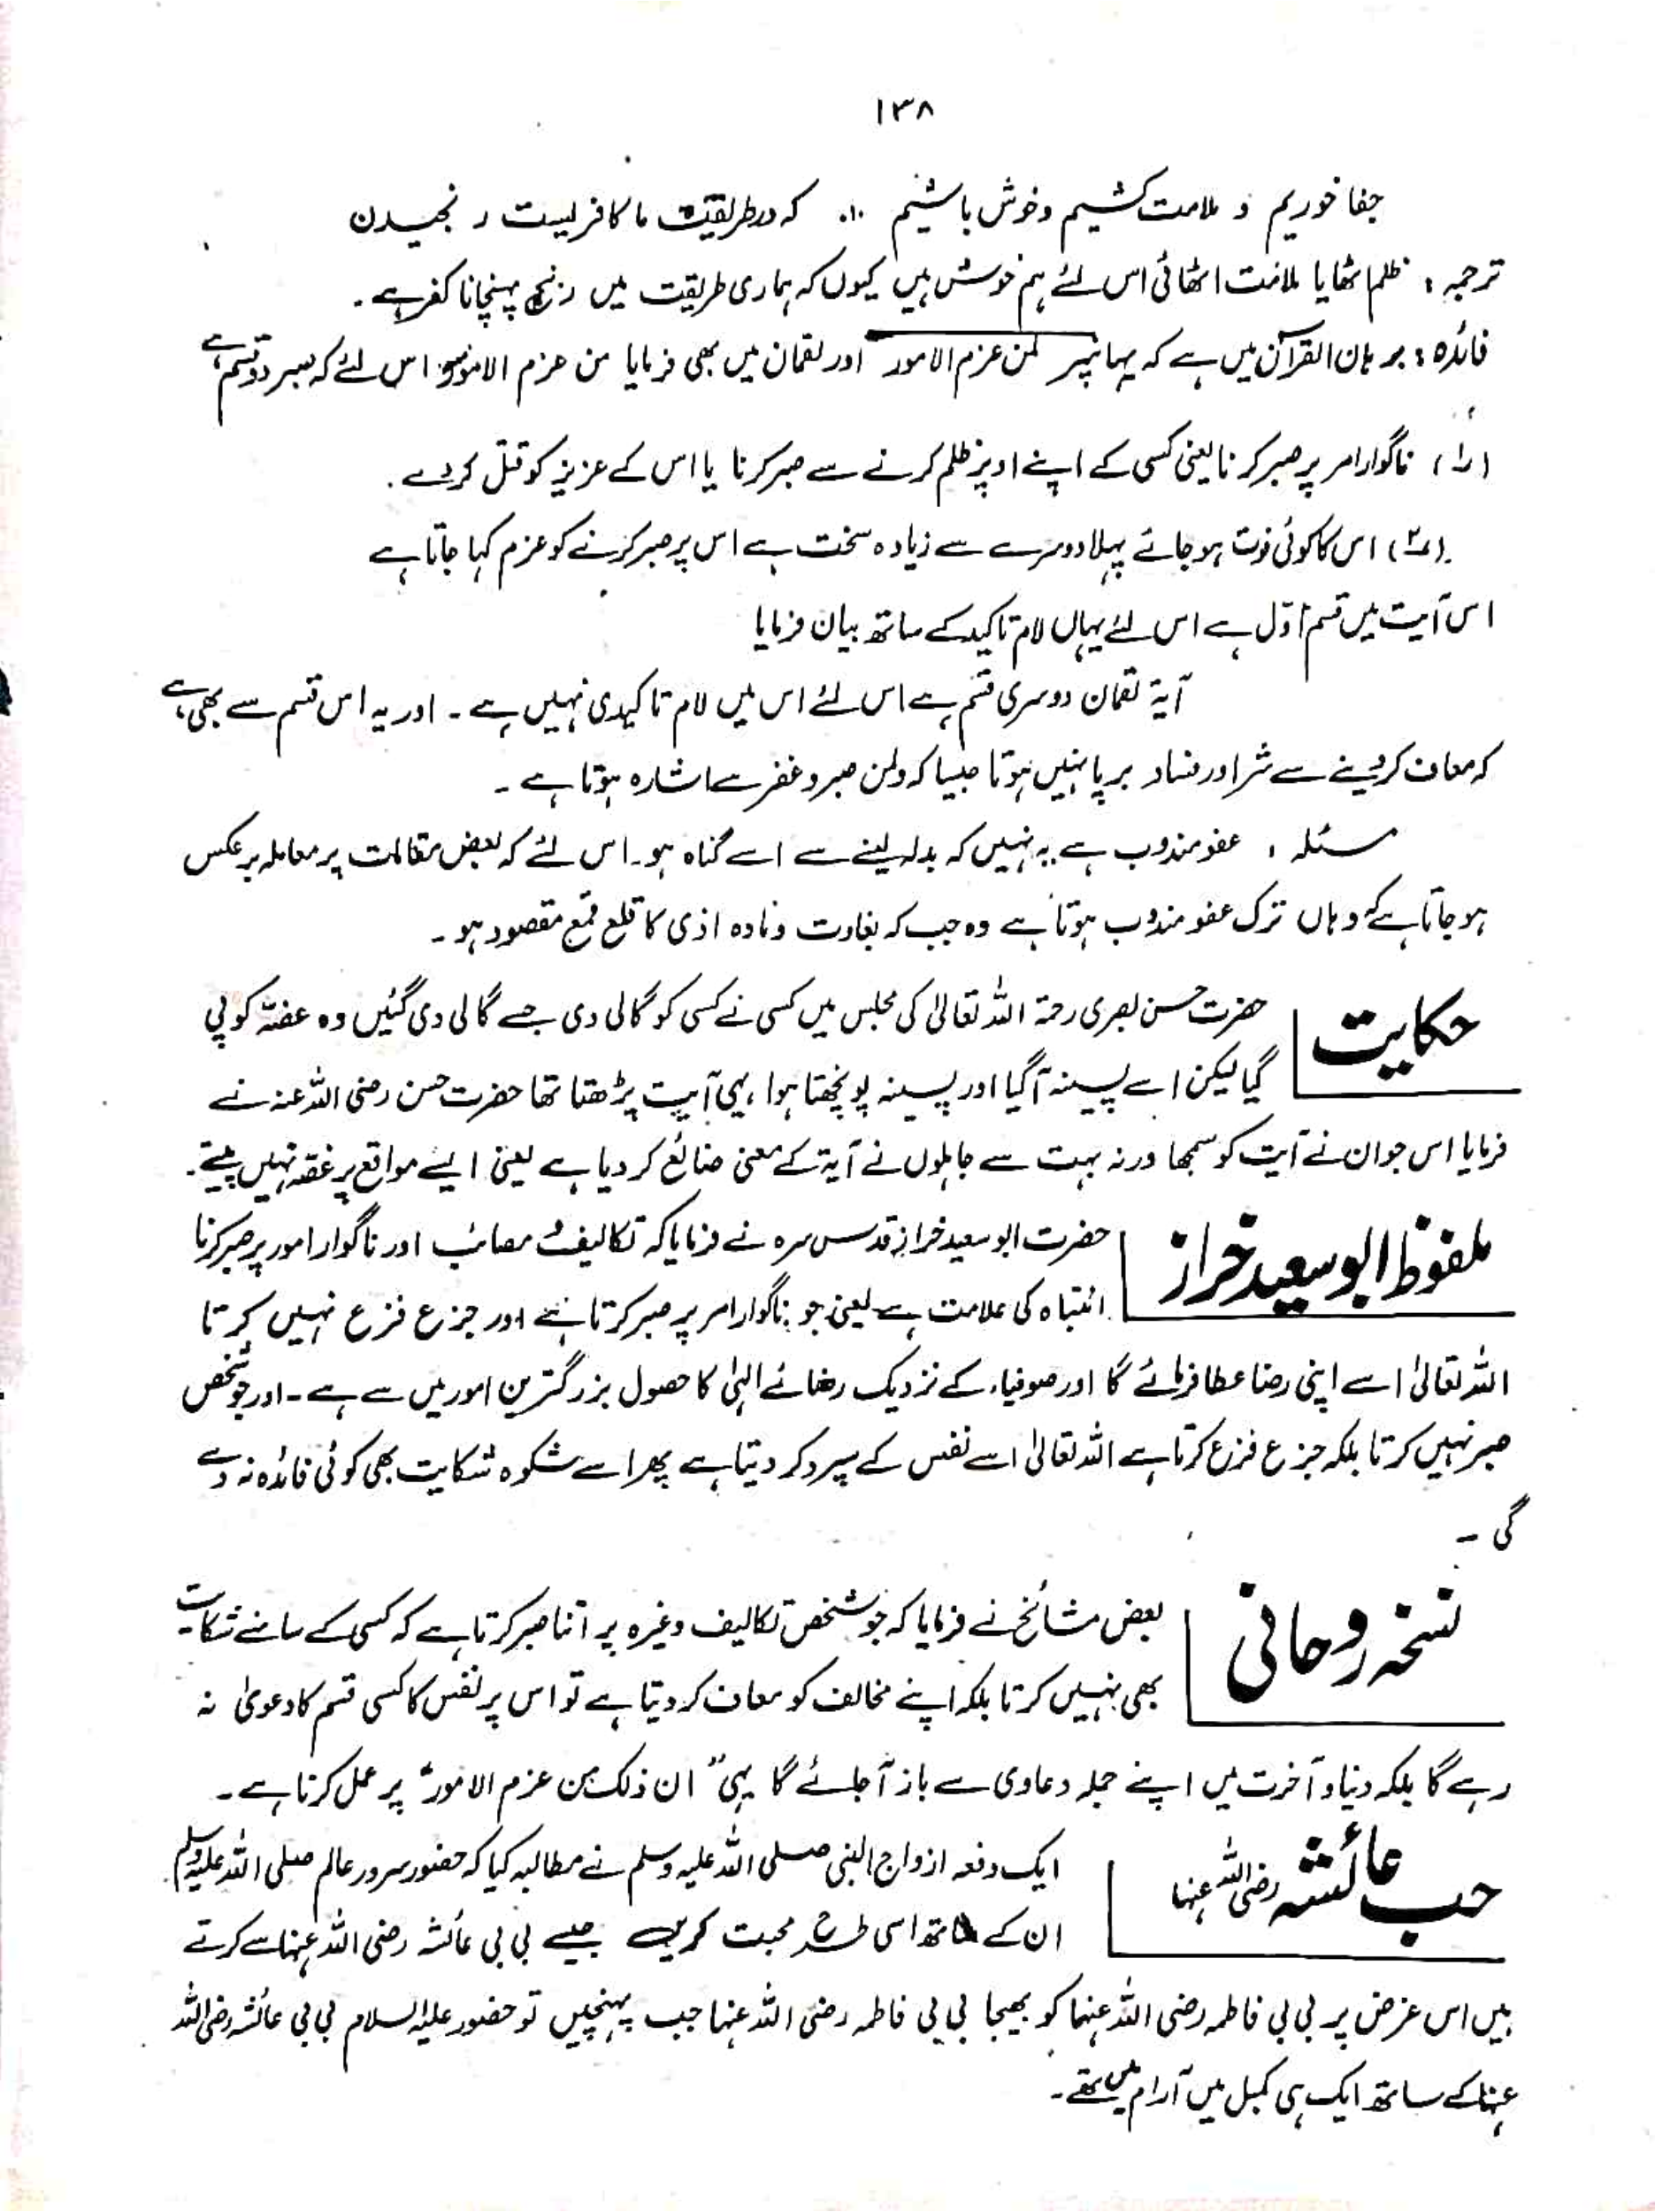 ۱۳۸
جفا خوریم و ملامت کشیم و خوش باشیم ۰۱۰ کہ در طریقت ما کافریست رنجیدن
ترجمہ : ظلم اٹھایا ملامت اٹھائی اس لئے ہم خوش ہیں کیوں کہ ہماری طریقت میں رنج پہنچانا کفر ہے ۔
فائدہ : برہان القرآن میں ہے کہ یہاں پر لمن عزم الامور اور لقمان میں بھی فرمایا من عزم الامور اس لئے کہ صبر دو قسم ہے
(۱) ناگوار امر پر صبر کرنا یعنی کسی کے اپنے اوپر ظلم کرنے سے صبر کرنا یا اس کے عزیز کو قتل کر دے ۔
(۲) اس کا کوئی فوت ہو جائے پہلا دوسرے سے زیادہ سخت ہے اس پر صبر کرنے کو عزم کہا جاتا ہے
اس آیت میں قسم اوّل ہے اس لئے یہاں لام تاکید کے ساتھ بیان فرمایا
آیۃ لقمان دوسری قسم ہے اس لئے اس میں لام تاکیدی نہیں ہے ۔ اور یہ اس قسم سے بھی ہے
کہ معاف کر دینے سے شر اور فساد برپا نہیں ہوتا جیسا کہ ولمن صبر و غفر سے اشارہ ہوتا ہے ۔
مسئلہ ، عفو مندوب ہے یہ نہیں کہ بدلہ لینے سے اسے گناہ ہو ۔ اس لئے کہ بعض مقامات پر معاملہ برعکس
ہو جاتا ہے کہ وہاں ترک عفو مندوب ہوتا ہے وہ جب کہ بغاوت و مادہ اذی کا قلع قمع مقصود ہو ۔
حکایت
حضرت حسن بصری رحمۃ اللہ تعالیٰ کی مجلس میں کسی نے کسی کو گالی دی جسے گالی دی گئیں وہ غصّہ کو پی
گیا لیکن اسے پسینہ آ گیا اور پسینہ پونچھتا ہوا ، یہی آیت پڑھتا تھا حضرت حسن رضی اللہ عنہ نے
فرمایا اس جوان نے آیت کو سمجھا ورنہ بہت سے جاہلوں نے آیۃ کے معنی ضائع کر دیا ہے یعنی ایسے مواقع پر غصّہ نہیں پیتے ۔
ملفوظ ابو سعید خراز
حضرت ابو سعید خراز قدس سرہ نے فرمایا کہ تکالیف مصائب اور ناگوار امور پر صبر کرنا
انتباہ کی علامت ہے یعنی جو ناگوار امر پر صبر کرتا ہے اور جزع فزع نہیں کرتا
اللہ تعالیٰ اسے اپنی رضا عطا فرمائے گا اور صوفیاء کے نزدیک رضائے الٰہی کا حصول بزرگترین امور میں سے ہے ۔ اور جو شخص
صبر نہیں کرتا بلکہ جزع فزع کرتا ہے اللہ تعالیٰ اسے نفس کے سپرد کر دیتا ہے پھر اسے شکوہ شکایت بھی کوئی فائدہ نہ دے
گی ۔
نسخہ روحانی
بعض مشائخ نے فرمایا کہ جو شخص تکالیف وغیرہ پر اتنا صبر کرتا ہے کہ کسی کے سامنے شکایت
بھی نہیں کرتا بلکہ اپنے مخالف کو معاف کر دیتا ہے تو اس پر نفس کا کسی قسم کا دعویٰ نہ
رہے گا بلکہ دنیا و آخرت میں اپنے جملہ دعاوی سے باز آ جائے گا یہی " ان ذلک من عزم الامور " پر عمل کرنا ہے ۔
حب عائشہ رضی اللہ عنہا
ایک دفعہ ازواج النبی صلی اللہ علیہ وسلم نے مطالبہ کیا کہ حضور سرور عالم صلی اللہ علیہ وسلم
ان کے ساتھ اسی طرح محبت کریں جیسے بی بی عائشہ رضی اللہ عنہا سے کرتے
ہیں اس غرض پر بی بی فاطمہ رضی اللہ عنہا کو بھیجا بی بی فاطمہ رضی اللہ عنہا جب پہنچیں تو حضور علیہ السلام بی بی عائشہ رضی اللہ
عنہا کے ساتھ ایک ہی کمبل میں آرام میں تھے ۔